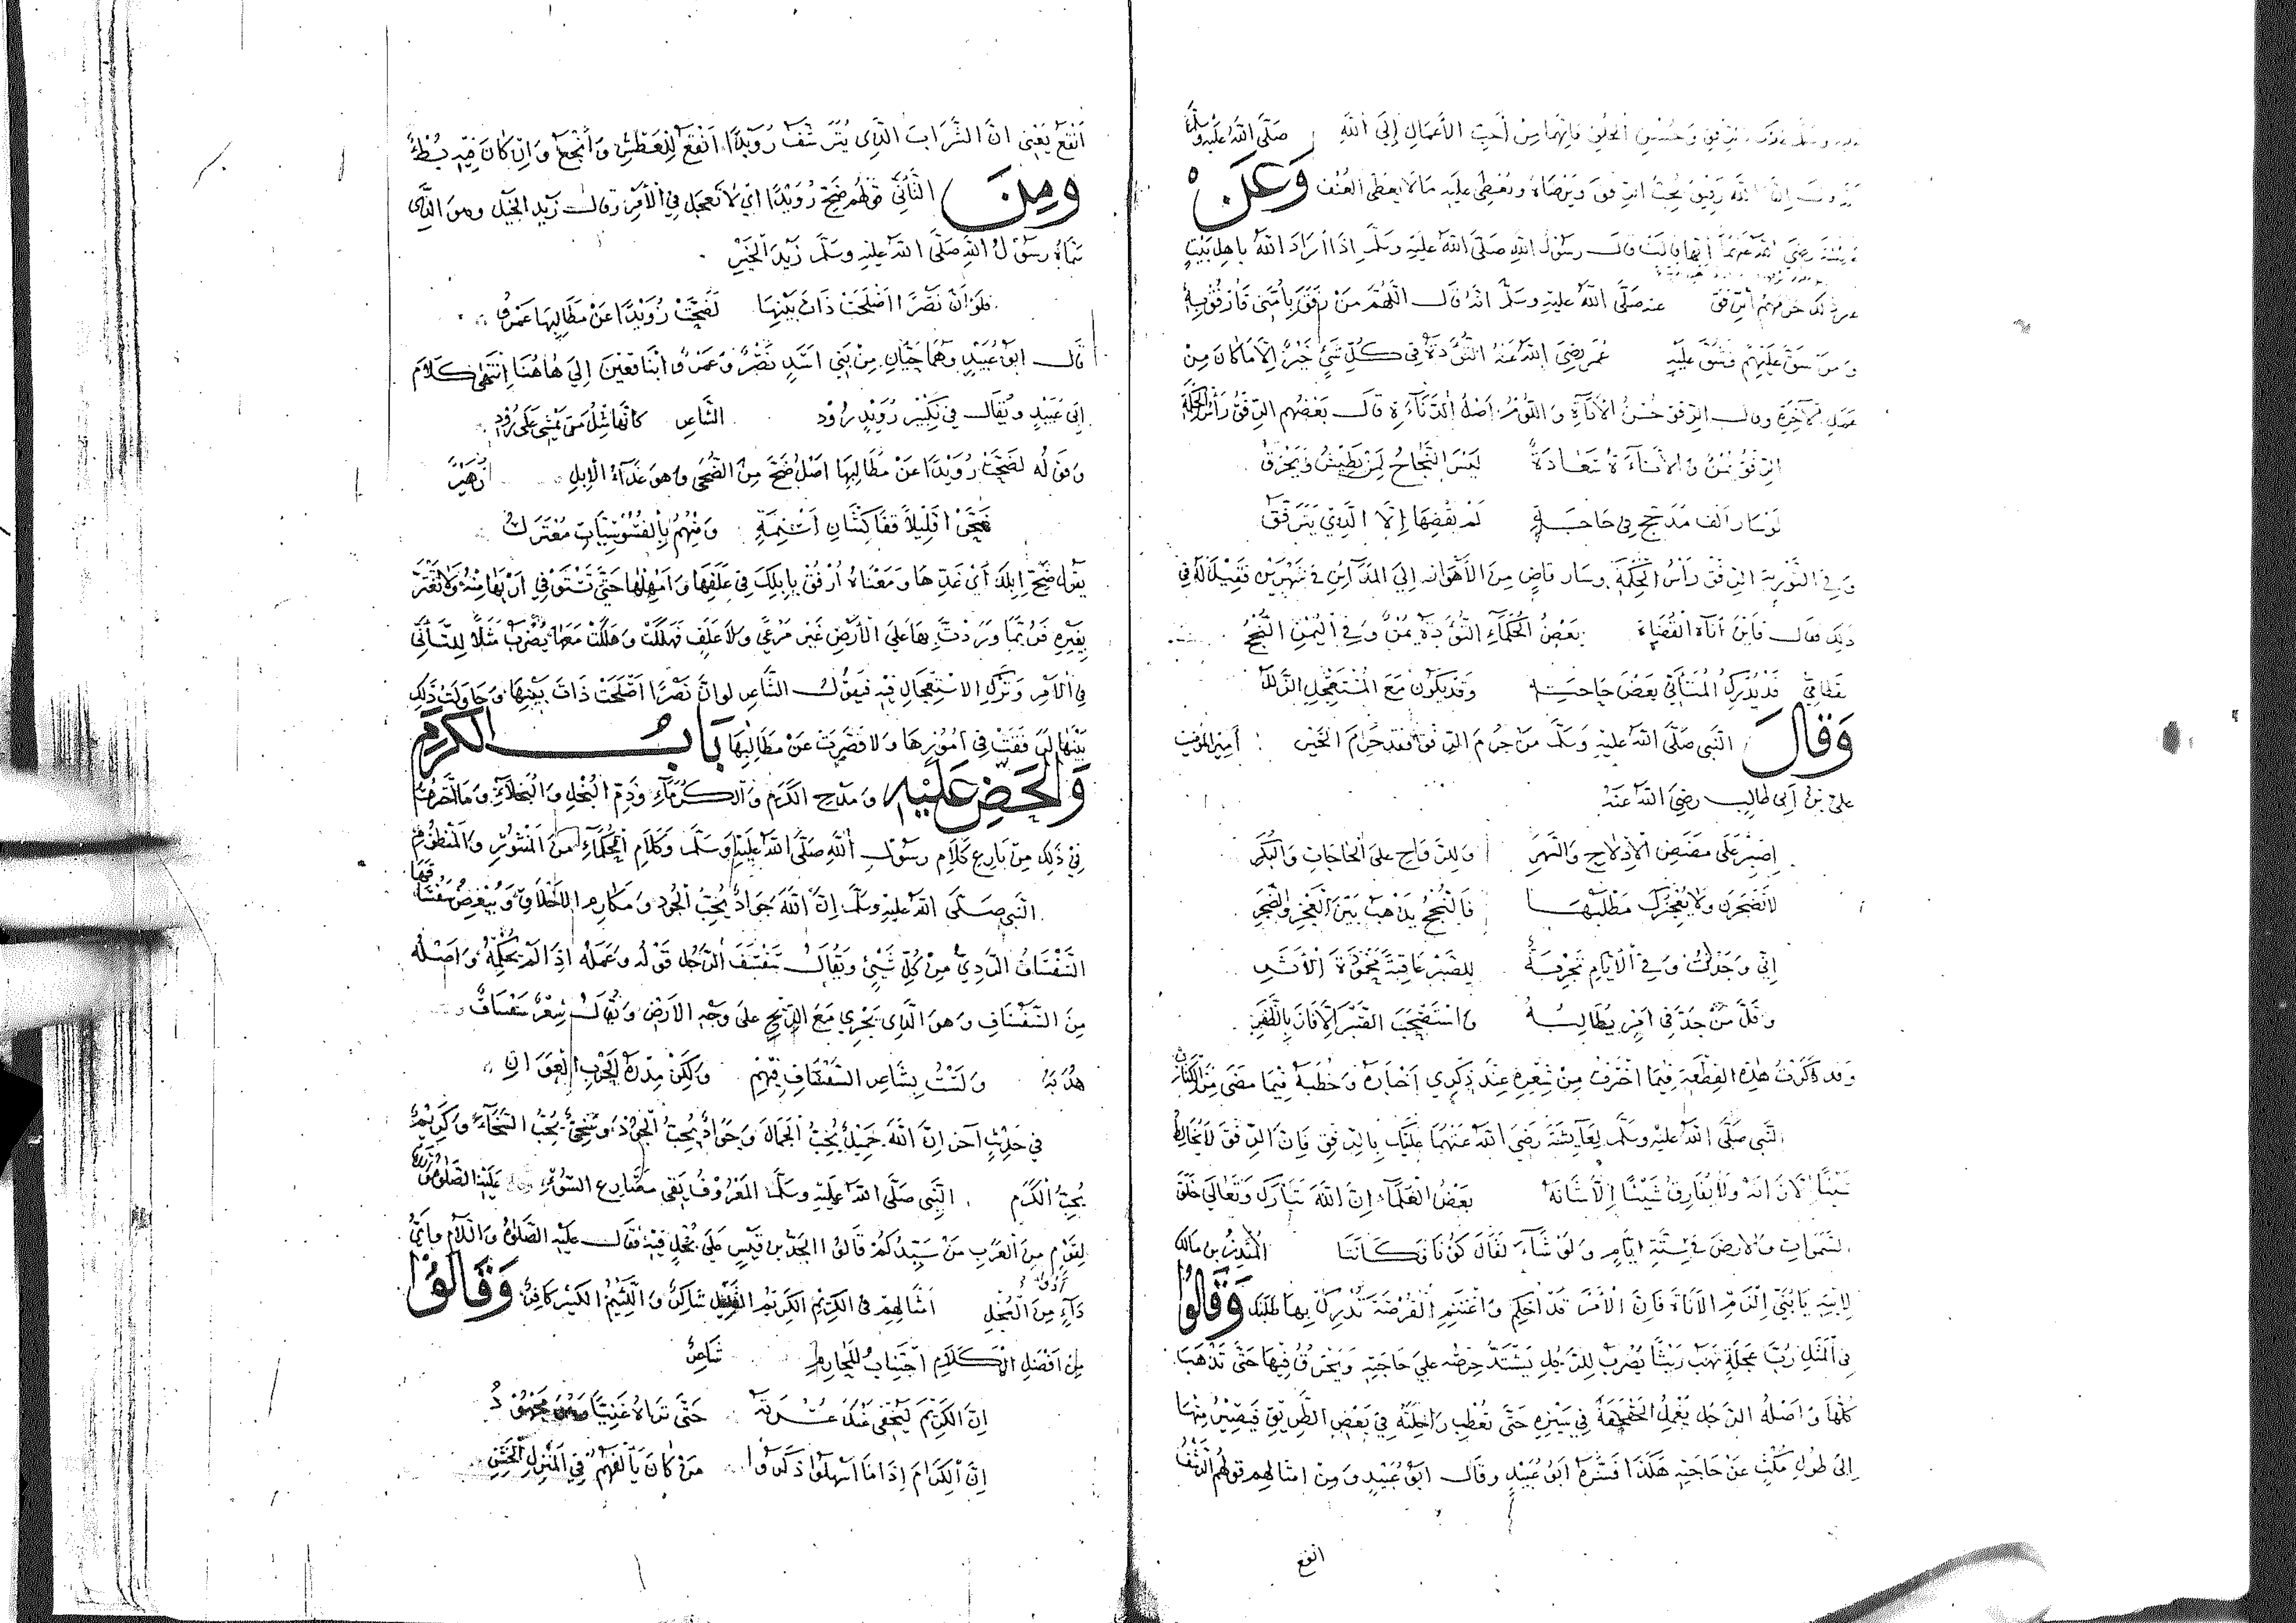 بالرفق وحسن الخلق فإنهما من أحب الأعمال إلى الله صلى الله عليه وسلم
إن الله رفيق يحب الرفق ويرضاه ويعطي عليه ما لا يعطي العنف وعن
عائشة رضي الله عنها أنها قالت قال رسول الله صلى الله عليه وسلم إذا أراد الله بأهل بيت
عنه صلى الله عليه وسلم أنه قال اللهم من رفق بأمتي فارفق به
ومن شق عليهم فشق عليه عمر رضي الله عنه التؤدة في كل شيء خير إلا ما كان من
عمل الآخرة وقال الرفق حسن الأناة والتؤدة قال بعضهم الرفق رأس الحكمة
الرفق يمن والأناءة سعادة ليس النجاح لمن يطيش ويخرق
لو سار ألف مدجج في حاجة لم يقضها إلا الذي يترفق
وفي التورية الرفق رأس الحكمة وسار قاض من الأهواز إلى المدآئن في شهرين فقيل له في
ذلك فقال فأين أناة القضاة بعض الحكمآء التؤدة يمن وفي اليمن النجح
قد يدرك المتأني بعض حاجته وقد يكون مع المستعجل الزلل
وقال النبي صلى الله عليه وسلم من حرم الرفق فقد حرم الخير أمير المؤمنين
علي بن أبي طالب رضي الله عنه
اصبر على مضض الإدلاج والسهر وللرواح على الحاجات والبكر
لا تضجرن ولا يعجزك مطلبها فالنجح يذهب بين العجز والضجر
إني وجدت وفي الأيام تجربة للصبر عاقبة محمودة الأثر
وقل من جد في أمر يطالبه واستصحب الصبر إلا فاز بالظفر
وقد ذكرت هذه القطعة فيما اخترت من شعره عند ذكري أخباره وخطبه فيما مضى من الكتاب
النبي صلى الله عليه وسلم لعآيشة رضي الله عنهما عليك بالرفق فإن الرفق لا يخالط
شيئا إلا زانه ولا يفارق شيئا إلا شانه بعض العلمآء إن الله تبارك وتعالى خلق
السموات والارض في ستة أيام ولو شآء لقال كونا فكانتا المنذر بن مالك
لابنه يا بني الزم الأناة فإن الأمر قد أحكم واغتنم الفرصة تدرك بها طلبك وقالوا
في المثل رب عجلة تهب ريثا يضرب للرجل يشتد حرصه على حاجته ويخرق فيها حتى تذهب
كلها وأصله الرجل يعمل الحقحقة في سيره حتى تعطب راحلته في بعض الطريق فيصير منها
إلى طول مكث عن حاجته هكذا فسره أبو عبيد وقال أبو عبيد ومن امثالهم قولهم الرشف
انقع
أنقع يعني أن الشراب الذي يترشف رويدا أنقع للعطش وأنجع وإن كان فيه بطء
ومن التأني قولهم ضح رويدا أي لا تعجل في الأمر وقال زيد الخيل وهو الذي
سماه رسول الله صلى الله عليه وسلم زيد الخير
فلو أن نصرا أصلحت ذات بينها لضحت رويدا عن مطالبها عمرو
قال أبو عبيد وهما حيان من بني أسد نصر وعمرو ابنا قعين إلى هاهنا انتهى كلام
أبي عبيد ويقال في تكبير رويد رود الشاعر كأنها مثل من يمشي على رود
وقوله لضحت رويدا عن مطالبها أصل ضح من الضحى وهو غدآء الإبل زهير
ضحوا قليلا قفا كثبان أسنمة ومنهم بالقسوميات معترك
يقول ضح إبلك أي غدها ومعناه ارفق بإبلك في علفها وأمهلها حتى تستوفي أربها منه ولا تغتر
بغيره فربما وردت بها على الأرض غير مرعى ولا علف فهلكت وهلكت معها يضرب مثلا للتأني
في الأمر وترك الاستعجال فيه فيقول الشاعر لو أن نصرا أصلحت ذات بينها وحاولت ذلك
بينها لرفقت في أمورها ولا قصرت عن مطالبها باب الكرم
والحض عليه ومدح الكرم والكرمآء وذم البخل والبخلآء وما
في ذلك من بارع كلام رسول الله صلى الله عليه وسلم وكلام الحكمآء من المنثور والمنظوم
النبي صلى الله عليه وسلم إن الله جواد يحب الجود ومكارم الأخلاق ويبغض سفسافها
السفساف الردي من كل شيئ ويقال سفسف الرجل قوله وعمله إذا لم يحكمه وأصله
من السفساف وهو الذي يجري مع الريح على وجه الارض ويقال شعر سفساف
هدبة ولست بشاعر السفساف فيهم ولكن مدره الحرب العوان
في حديث آخر إن الله جميل يحب الجمال وجواد يحب الجود وسخي يحب السخآء وكريم
يحب الكرم النبي صلى الله عليه وسلم المعروف يقي مصارع السوء عليه الصلوة والسلام
لقوم من العرب من سيدكم قالوا الجد بن قيس على بخل فيه فقال عليه الصلوة والسلام وأي
دآء أدوى من البخل امثالهم في الكرم الكريم شاكر واللئيم كافر وقالوا
من أفضل الكلام اجتناب المحارم شاعر
إن الكريم ليخفي عنك عسرته حتى تراه غنيا وهو مجهود
إن الكرام إذا ما أسهلوا ذكروا من كان يألفهم في المنزل الخشن